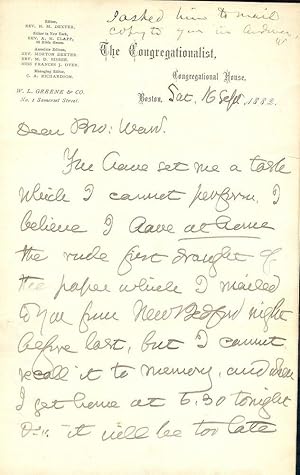 Editor,
REV. H. M. DEXTER.
Editor in New York,
REV. A. H. CLAPP,
Associate Editors,
REV. MORTON DEXTER
Managing Editor,
C. A. RICHARDSON.
W. L. GREENE & CO.
No. 1 Somerset Street.
I asked him to mail
copy to you in
The Congregationalist,
Congregational House,
Boston, Sat. 16 Sept. 1882
Dear Bro: Ward.
You have set me a task
which I cannot perform. I
believe I have at home
the rude first draught of
the paper which I mailed
to you from New Bedford night
before last, but I cannot
recall it to memory, and when
I get home at 5.30 tonight
it will be too late